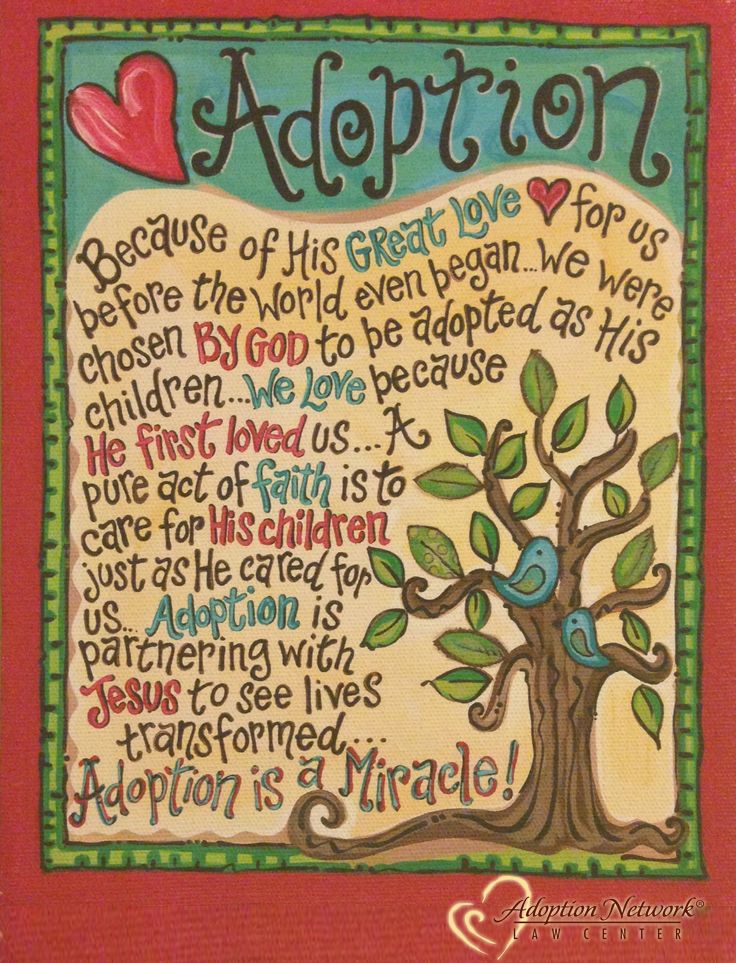 Adoption
Because of His Great Love for us
before the world even began...We were
chosen By God to be adopted as His
children...We Love because
He first loved us...A
pure act of faith is to
care for His children
just as He cared for
us... Adoption is
partnering with
Jesus to see lives
transformed...
Adoption is a Miracle!
Adoption Network©
LAW CENTER